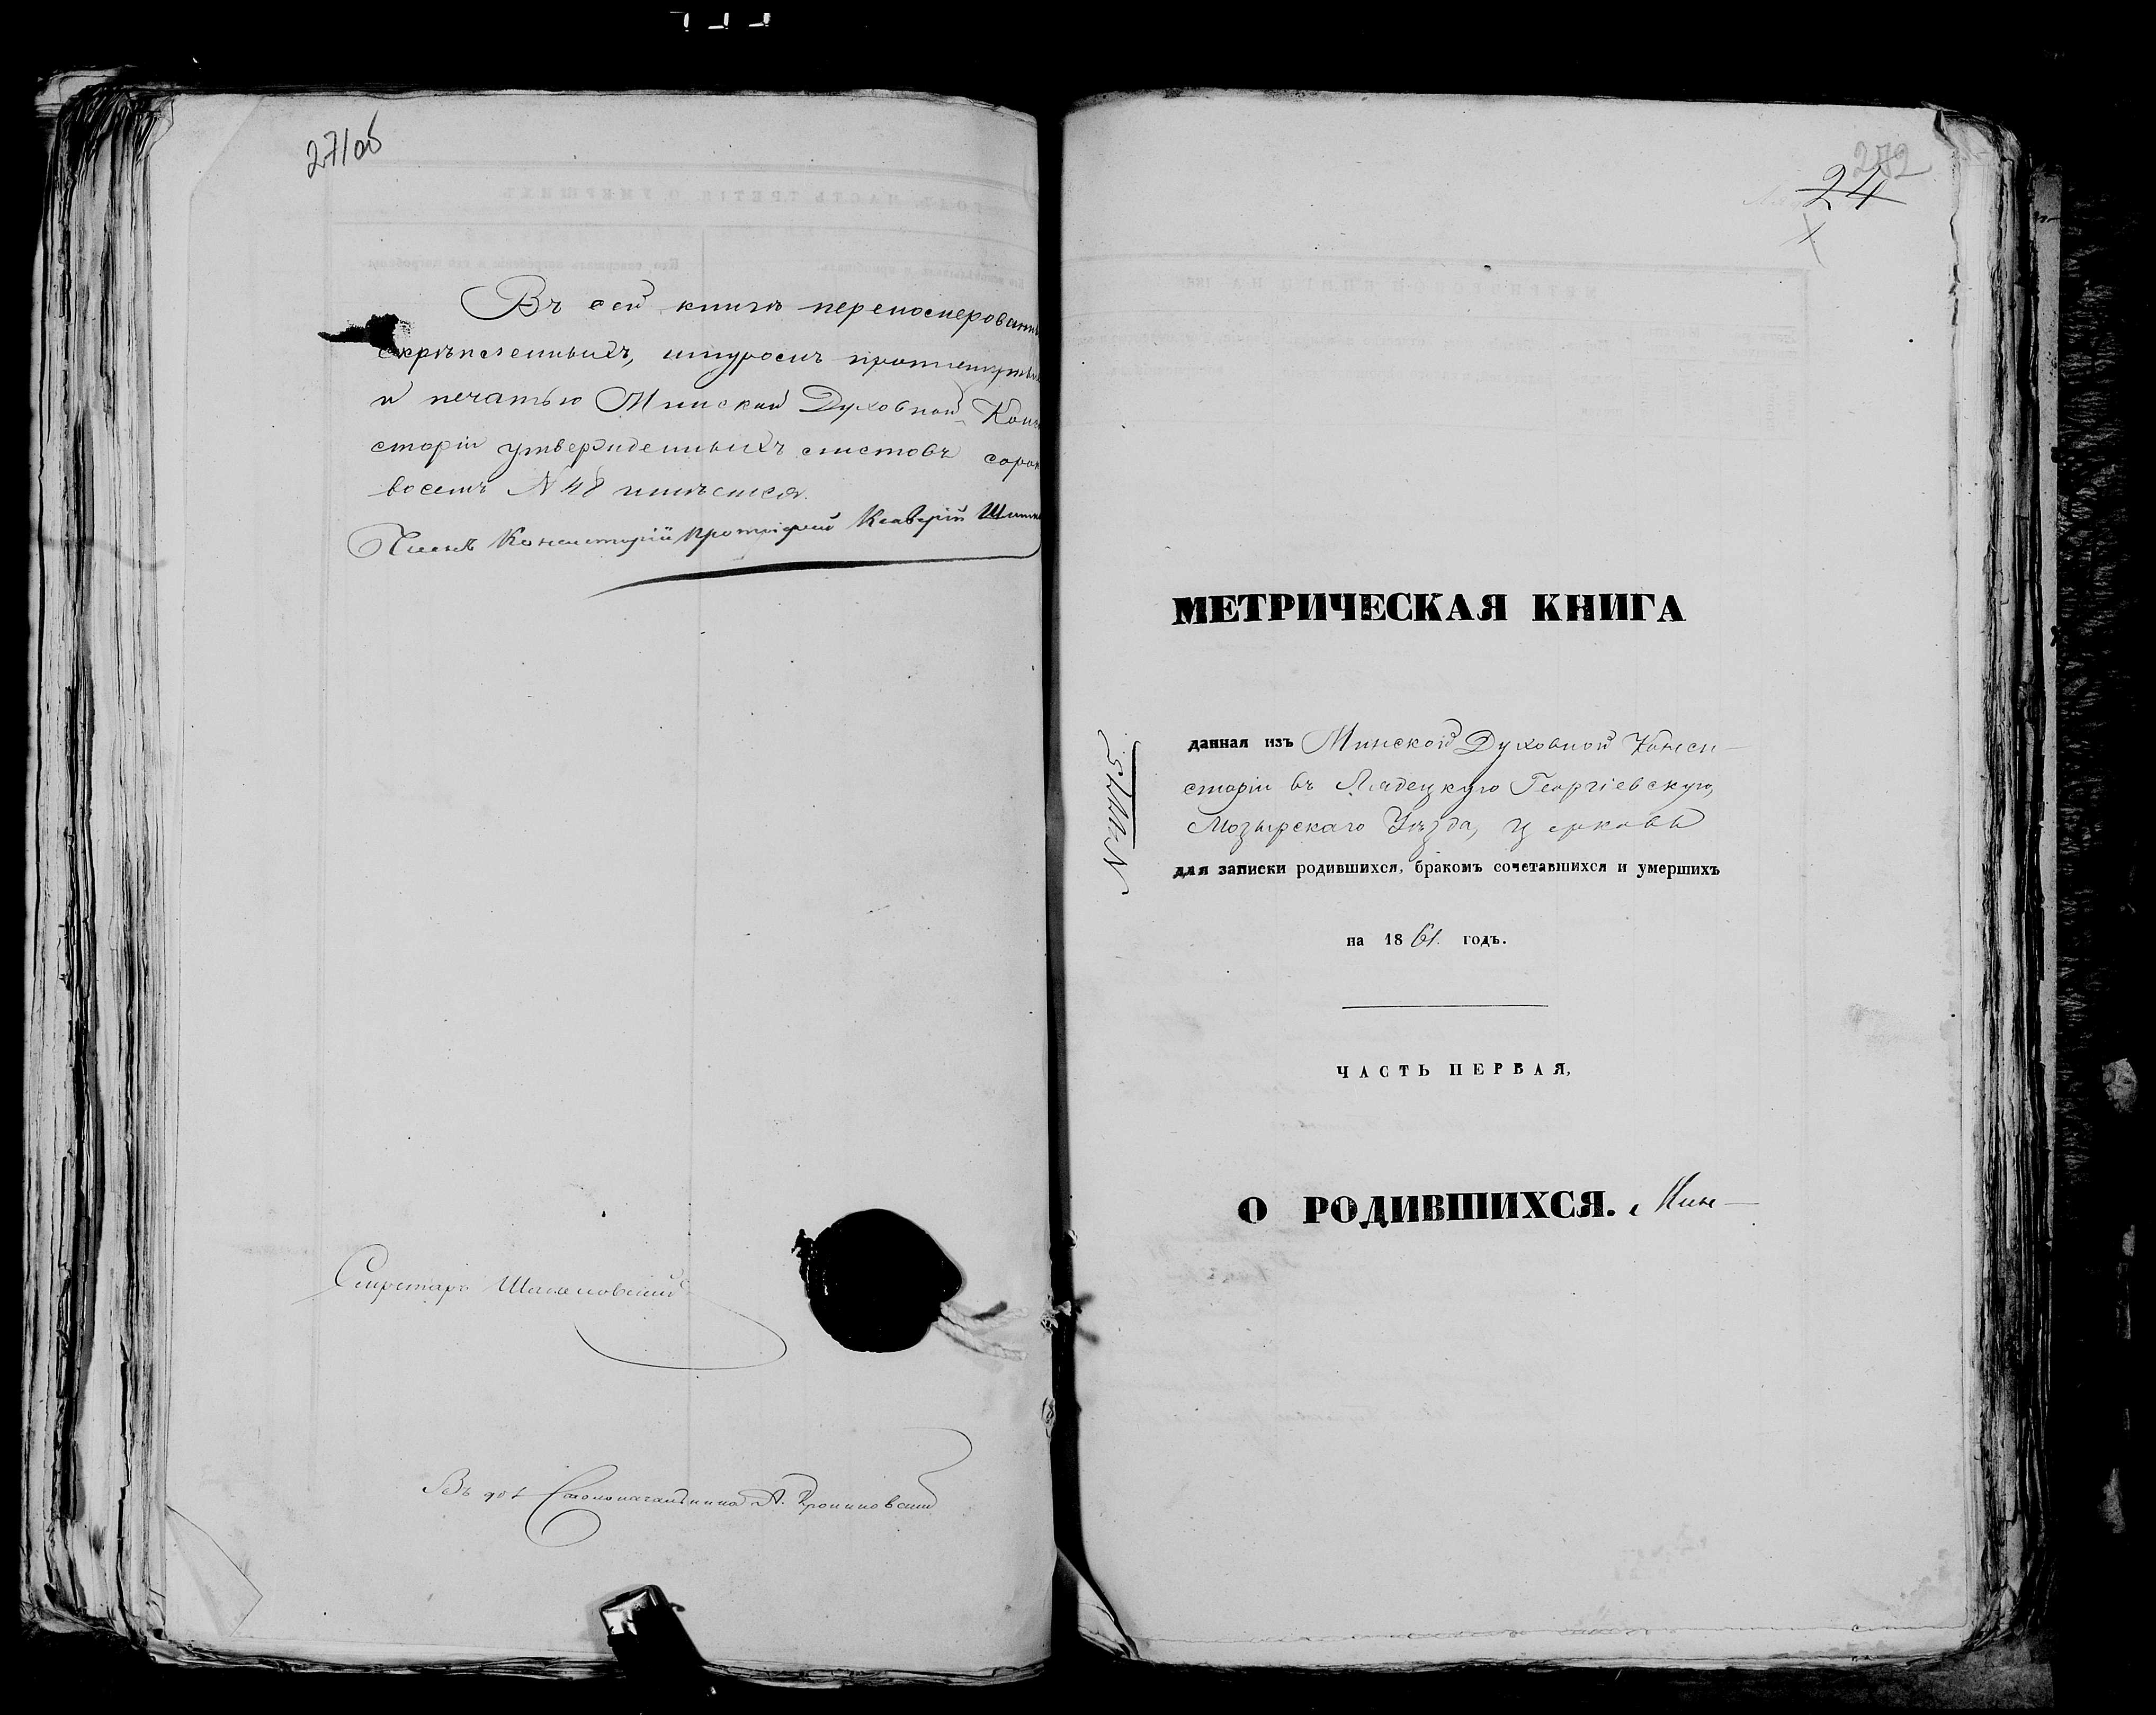 271об
Въ сей книгѣ перенумерован
скрѣпленныхъ, шнуромъ
и печатью Минской Духовной Кон
сторіи утвержденныхъ листовъ сорок
восемь N 48 имѣется.
Членъ Консисторіи Протоіерей
Секретарь
Въ дол Столоначальника А.
272
24
МЕТРИЧЕСКАЯ КНИГА
данная изъ Минской Духовной Конси-
сторіи въ Лядецкую Георгіевскую,
Мозырскаго Уѣзда, церковь
для записки родившихся, бракомъ сочетавшихся и умершихъ
на 1861. годъ.
ЧАСТЬ ПЕРВАЯ,
О РОДИВШИХСЯ. Мин-